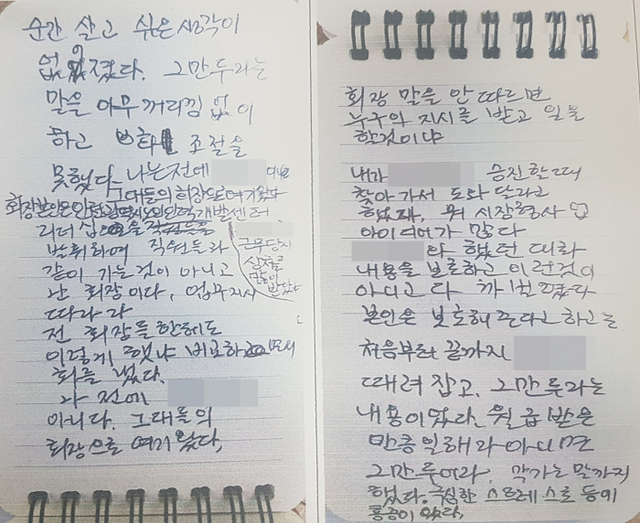 순간 살고 싶은 생각이
없어졌다. 그만두라는
말을 아무 꺼리낌 없이
하고 조절을
못했다. 나는 전에
그대들의 회장으로 여기 왔다
회장본인은
리더십을
발휘하여 직원들과
근무단지
같이 가는것이 아니고
상처를
많이
받았다
난 회장이다, 업무지시
따라라
전 회장들한테도
이렇게 했냐 비교하면서
화를 냈다.
나 전에
아니다. 그대들의
회장으로 여기 왔다,
회장 말을 안 따르면
누구의 지시를 받고 일을
할것이냐
내가 승진할때
찾아가서 도와 달라고
했대, 뭐
아이어가 많다
와 했던 대화
내용을 보호하고 이런것이
아니고 다 까발렸다
본인은 보호해 준다고 하고는
처음부터 끝까지
때려 잡고, 그만두라는
내용이었다. 월급 받은
만큼 일해라 아니면
그만두어라, 막가는 말까지
했다. 극심한 스트레스로 등에
통증이 있다,